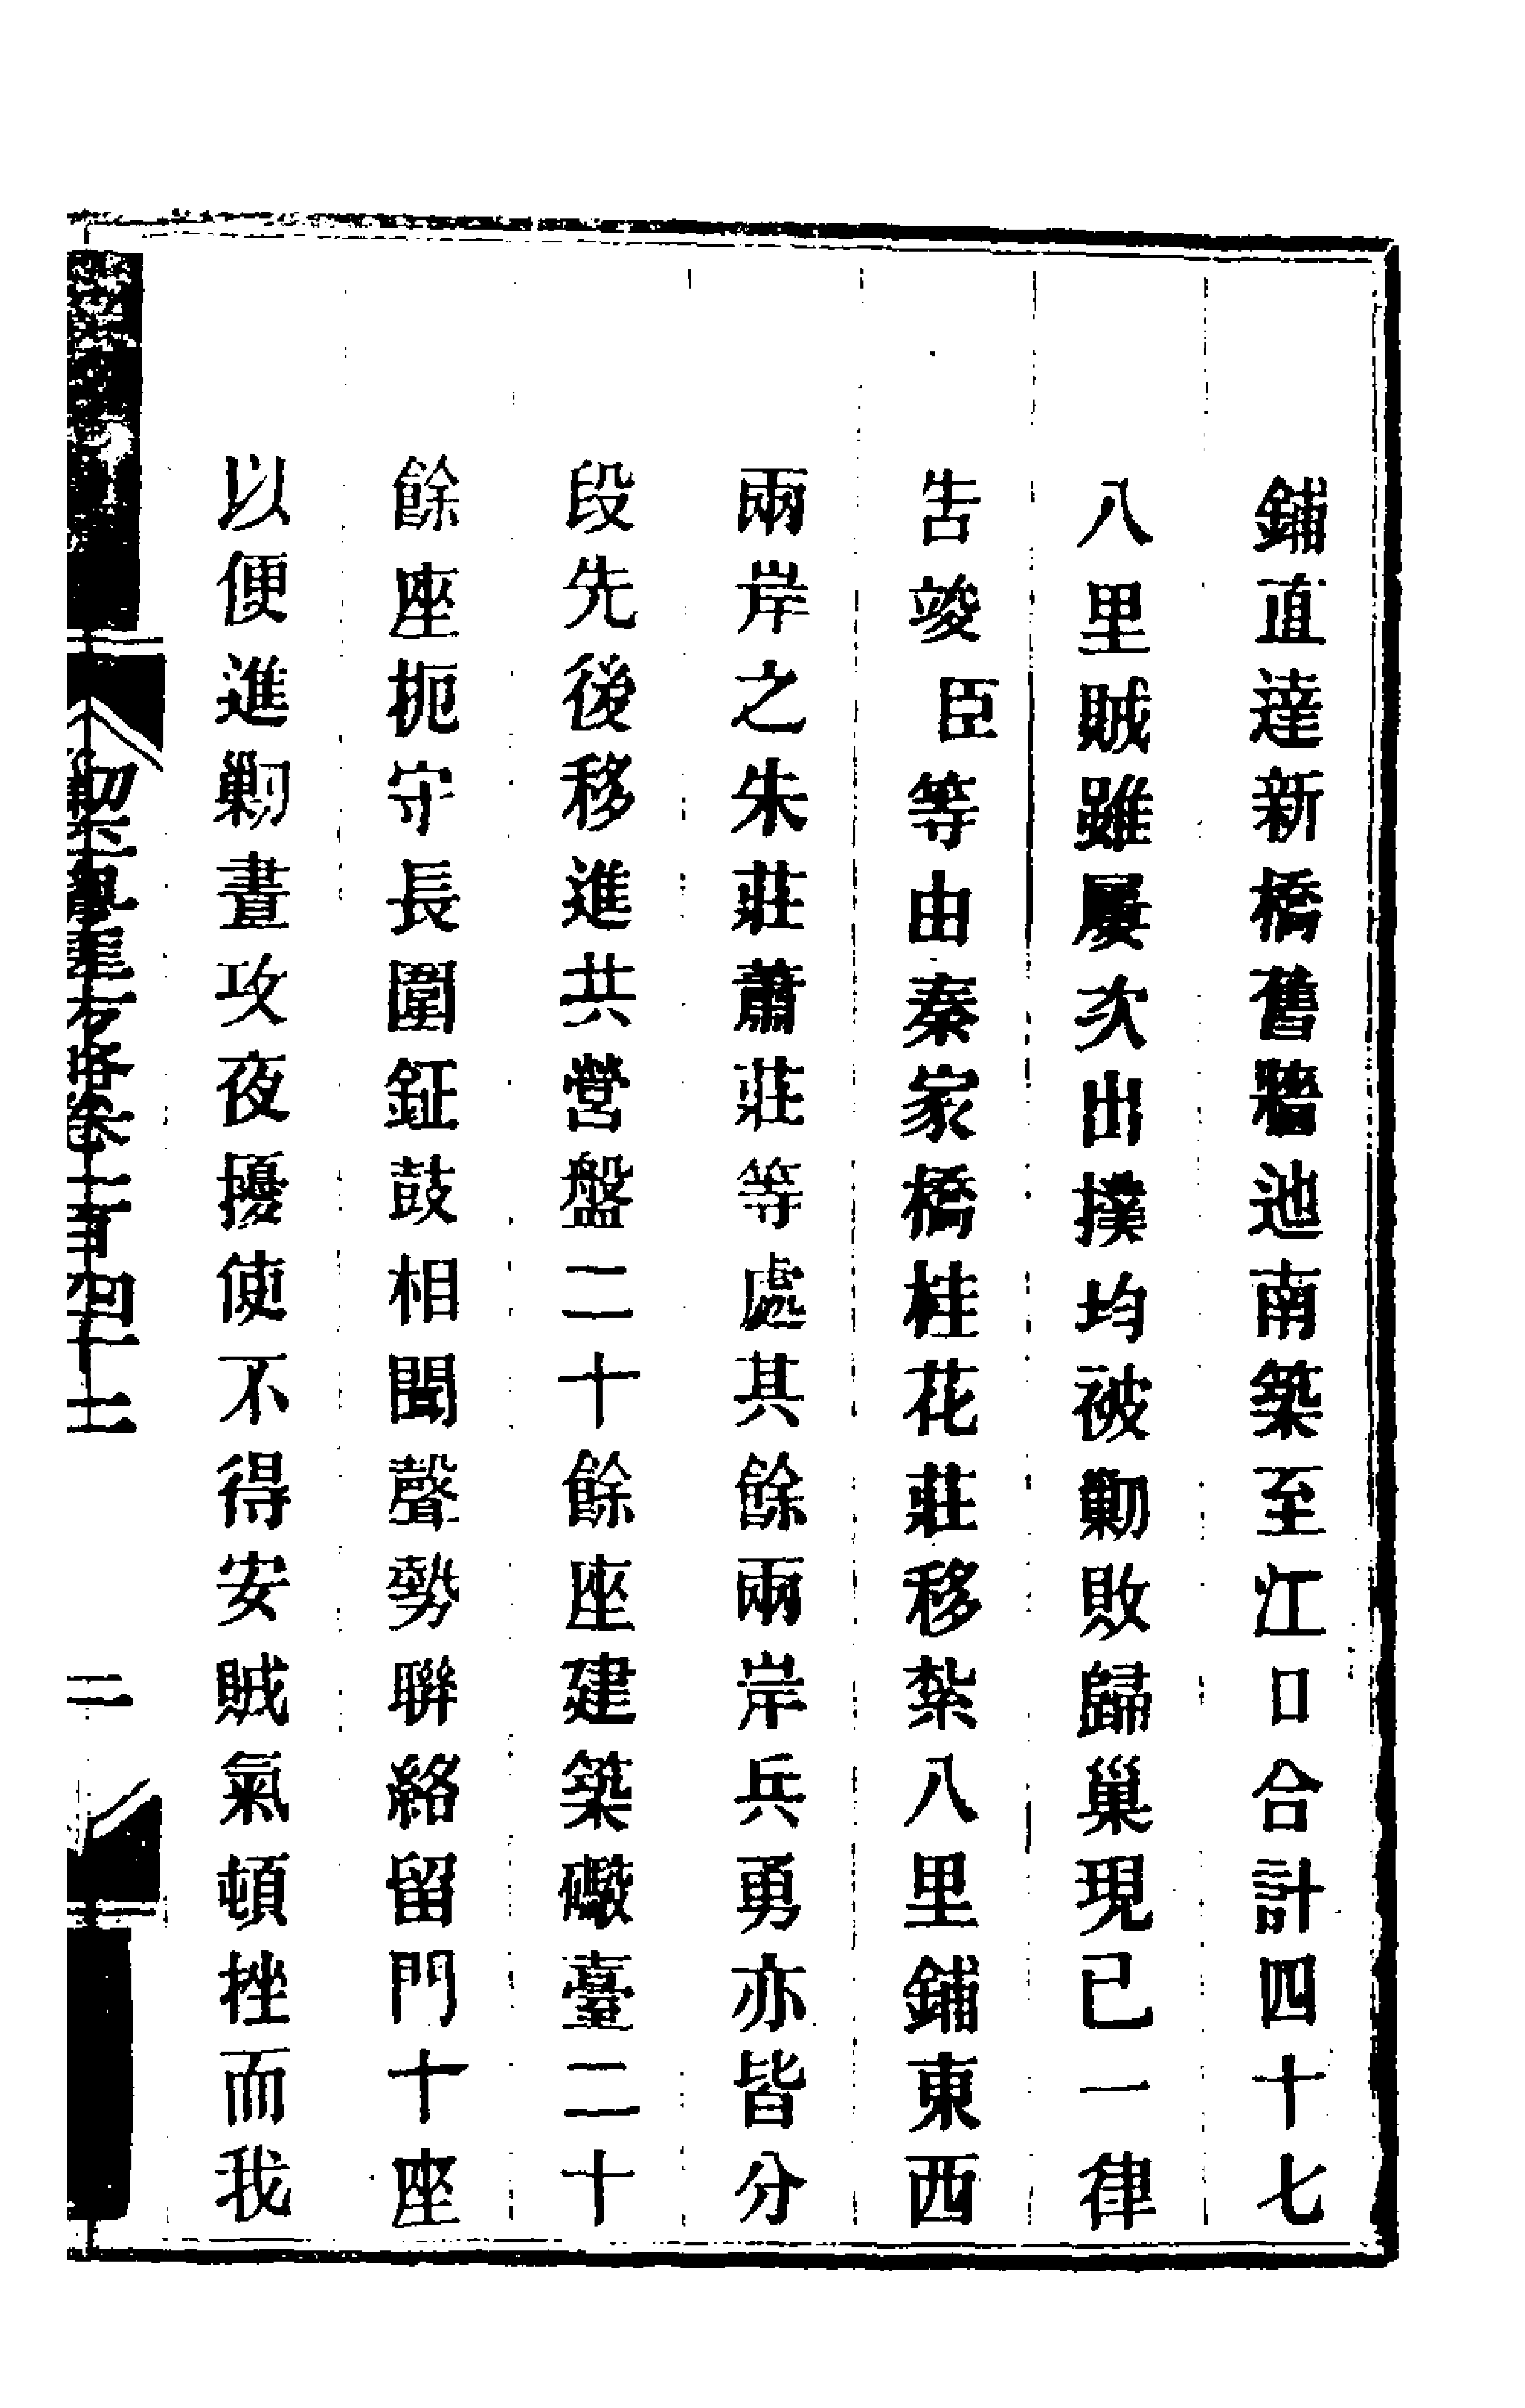 鋪直達新橋舊牆池南築至江口合計四十七
八里賊雖屢次出撲均被剿敗歸巢現已一律
告竣臣等由秦家橋桂花莊移紮八里鋪東西
兩岸之朱莊蕭莊等處其餘兩岸兵勇亦皆分
段先後移進共營盤二十餘座建築礮臺二十
餘座扼守長圍鉦鼓相聞聲勢聯絡留門十座
以便進剿晝攻夜擾使不得安賊氣頓挫而我
二